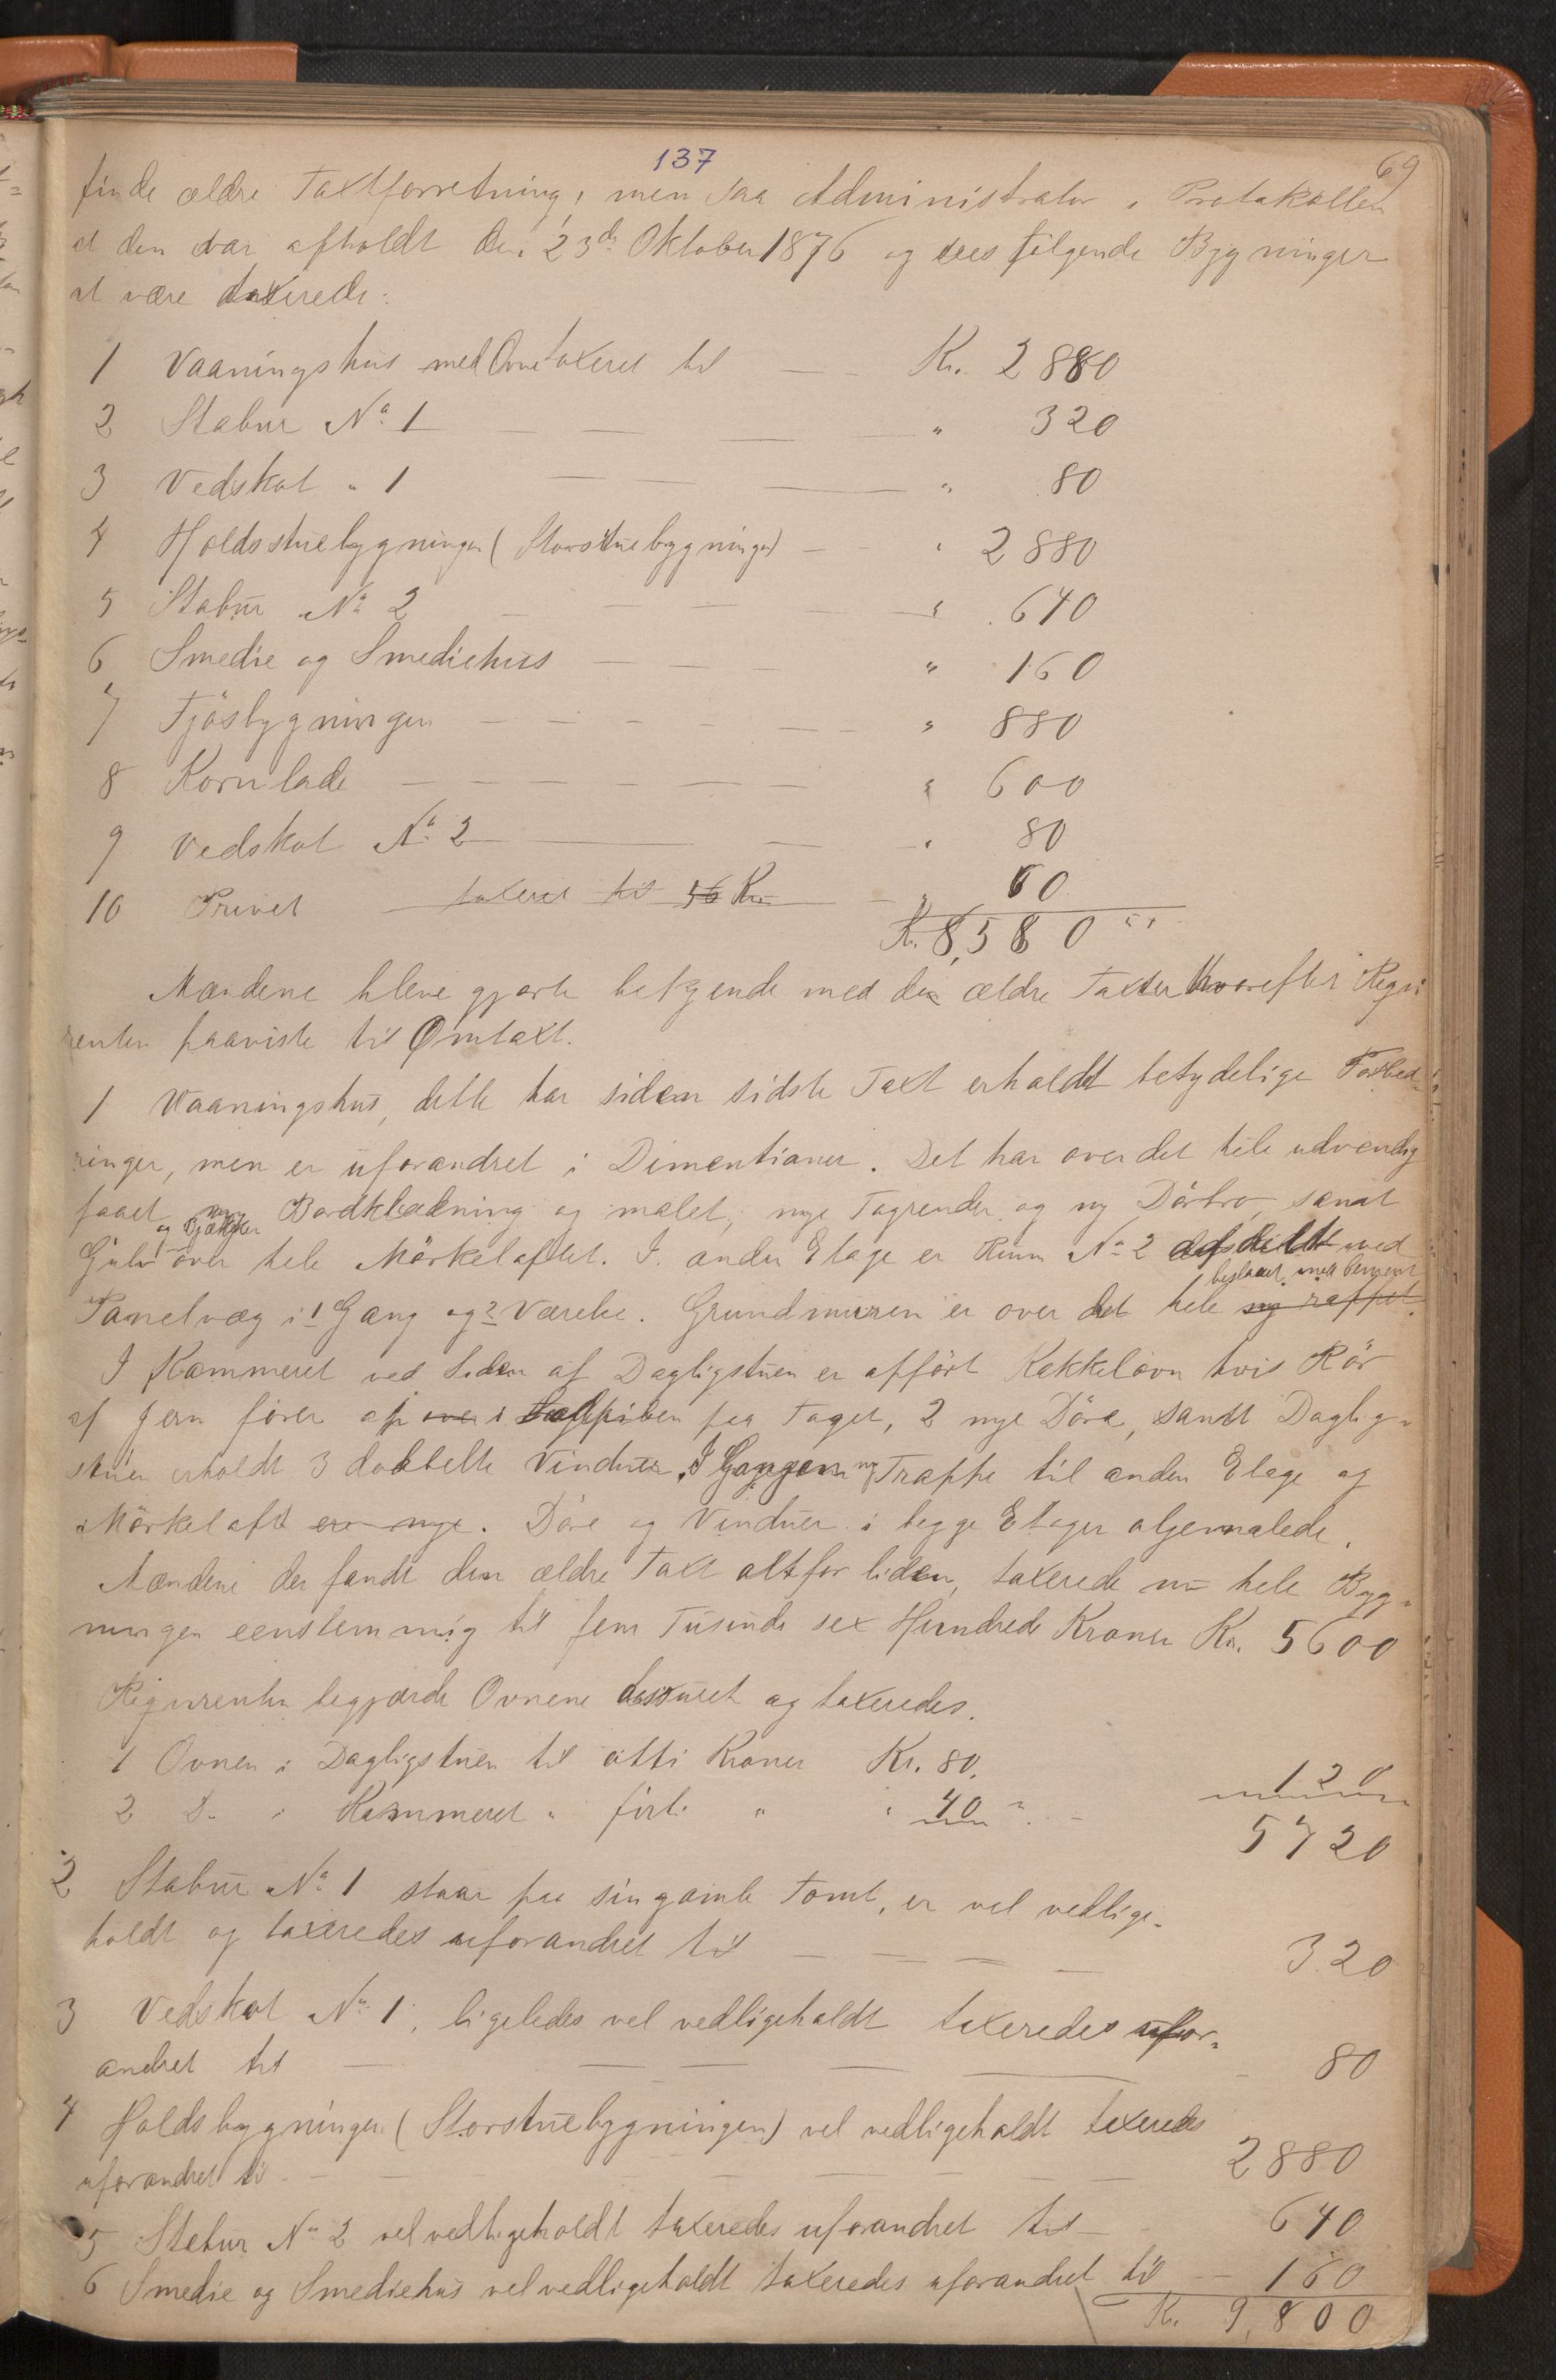 137
69
finde ældre Taxtforretning, men saa Administrator i Protokollen
at den var afholdt den 23de Oktober 1876 og sees følgende Bygninger
at være taxerede:
1 Vaaningshus med Ovne taxeret til — — Kr. 2880
2 Stabur No. 1 — — — " 320
3 Vedskot " 1 — — " 80
4 Holdsstuebygningen (Storstuebygningen) — — " 2880
5 Stabur No. 2 — — — — " 640
6 Smedie og Smediehus — — — " 160
7 Fjøsbygningen — — — — — " 880
8 Kornlade — — — — — — " 600
9 Vedskot No. 2 — — — " 80
10 Privet — taxeret til 56 Kr. — " 60
Kr. 8,580 "
Mændene bleve gjorte bekjende med den ældre Taxt hvorefter Reqvi
renten paaviste til Omtaxt.
1 Vaaningshus, dette har siden sidste Taxt erholdt betydelige Forbed-
ringer, men er uforandret i Dimentioner. Det har over det hele udvendig
faaet ny Bordklædning og malet, nye Tagrender og ny Dörbro, samt
og Bjælker
Gulv over hele Mörkeloftet. I anden Etage er Rum No. 2 afdeelt med
Panelvæg i 1 Gang og 2 Værelse. Grundmuren er over det hele ny rappet.
beslaaet med Cement
I Kammeret ved Siden af Dagligstuen er opført Kakkelovn hvis Rör
af Jern fører op over i Pipen paa Taget, 2 nye Döre, samt Daglig-
stuen erholdt 3 dobbelte Vinduer, I Gangen ny Trappe til anden Etage og
Mörkeloft ere nye. Döre og Vinduer i begge Etager oljemalede.
Mændene der fandt den ældre Taxt altfor liden, taxerede nu hele Byg-
ningen eenstemmig til fem Tusinde sex Hundrede Kroner Kr. 5600
Reqvirenten begjærde Ovnene besigtet og taxeredes.
1 Ovnen i Dagligstuen til otti Kroner Kr. 80.
2 Do. i Kammeret " firti " " 40 " — 120
5720
2 Stabur No. 1 staar paa sin gamle Tomt, er vel vedlige-
holdt og taxeredes uforandret til — — — — 320
3 Vedskot No. 1, ligeledes vel vedligeholdt taxeredes ufor-
andret til — — — — — 80
4 Holdsbygningen (Storstuebygningen) vel vedligeholdt taxeredes
uforandret til — — — — — 2880
5 Stabur No. 2 vel vedligeholdt taxeredes uforandret til — 640
6 Smedie og Smediehus vel vedligeholdt taxeredes uforandret til — 160
Kr. 9,800